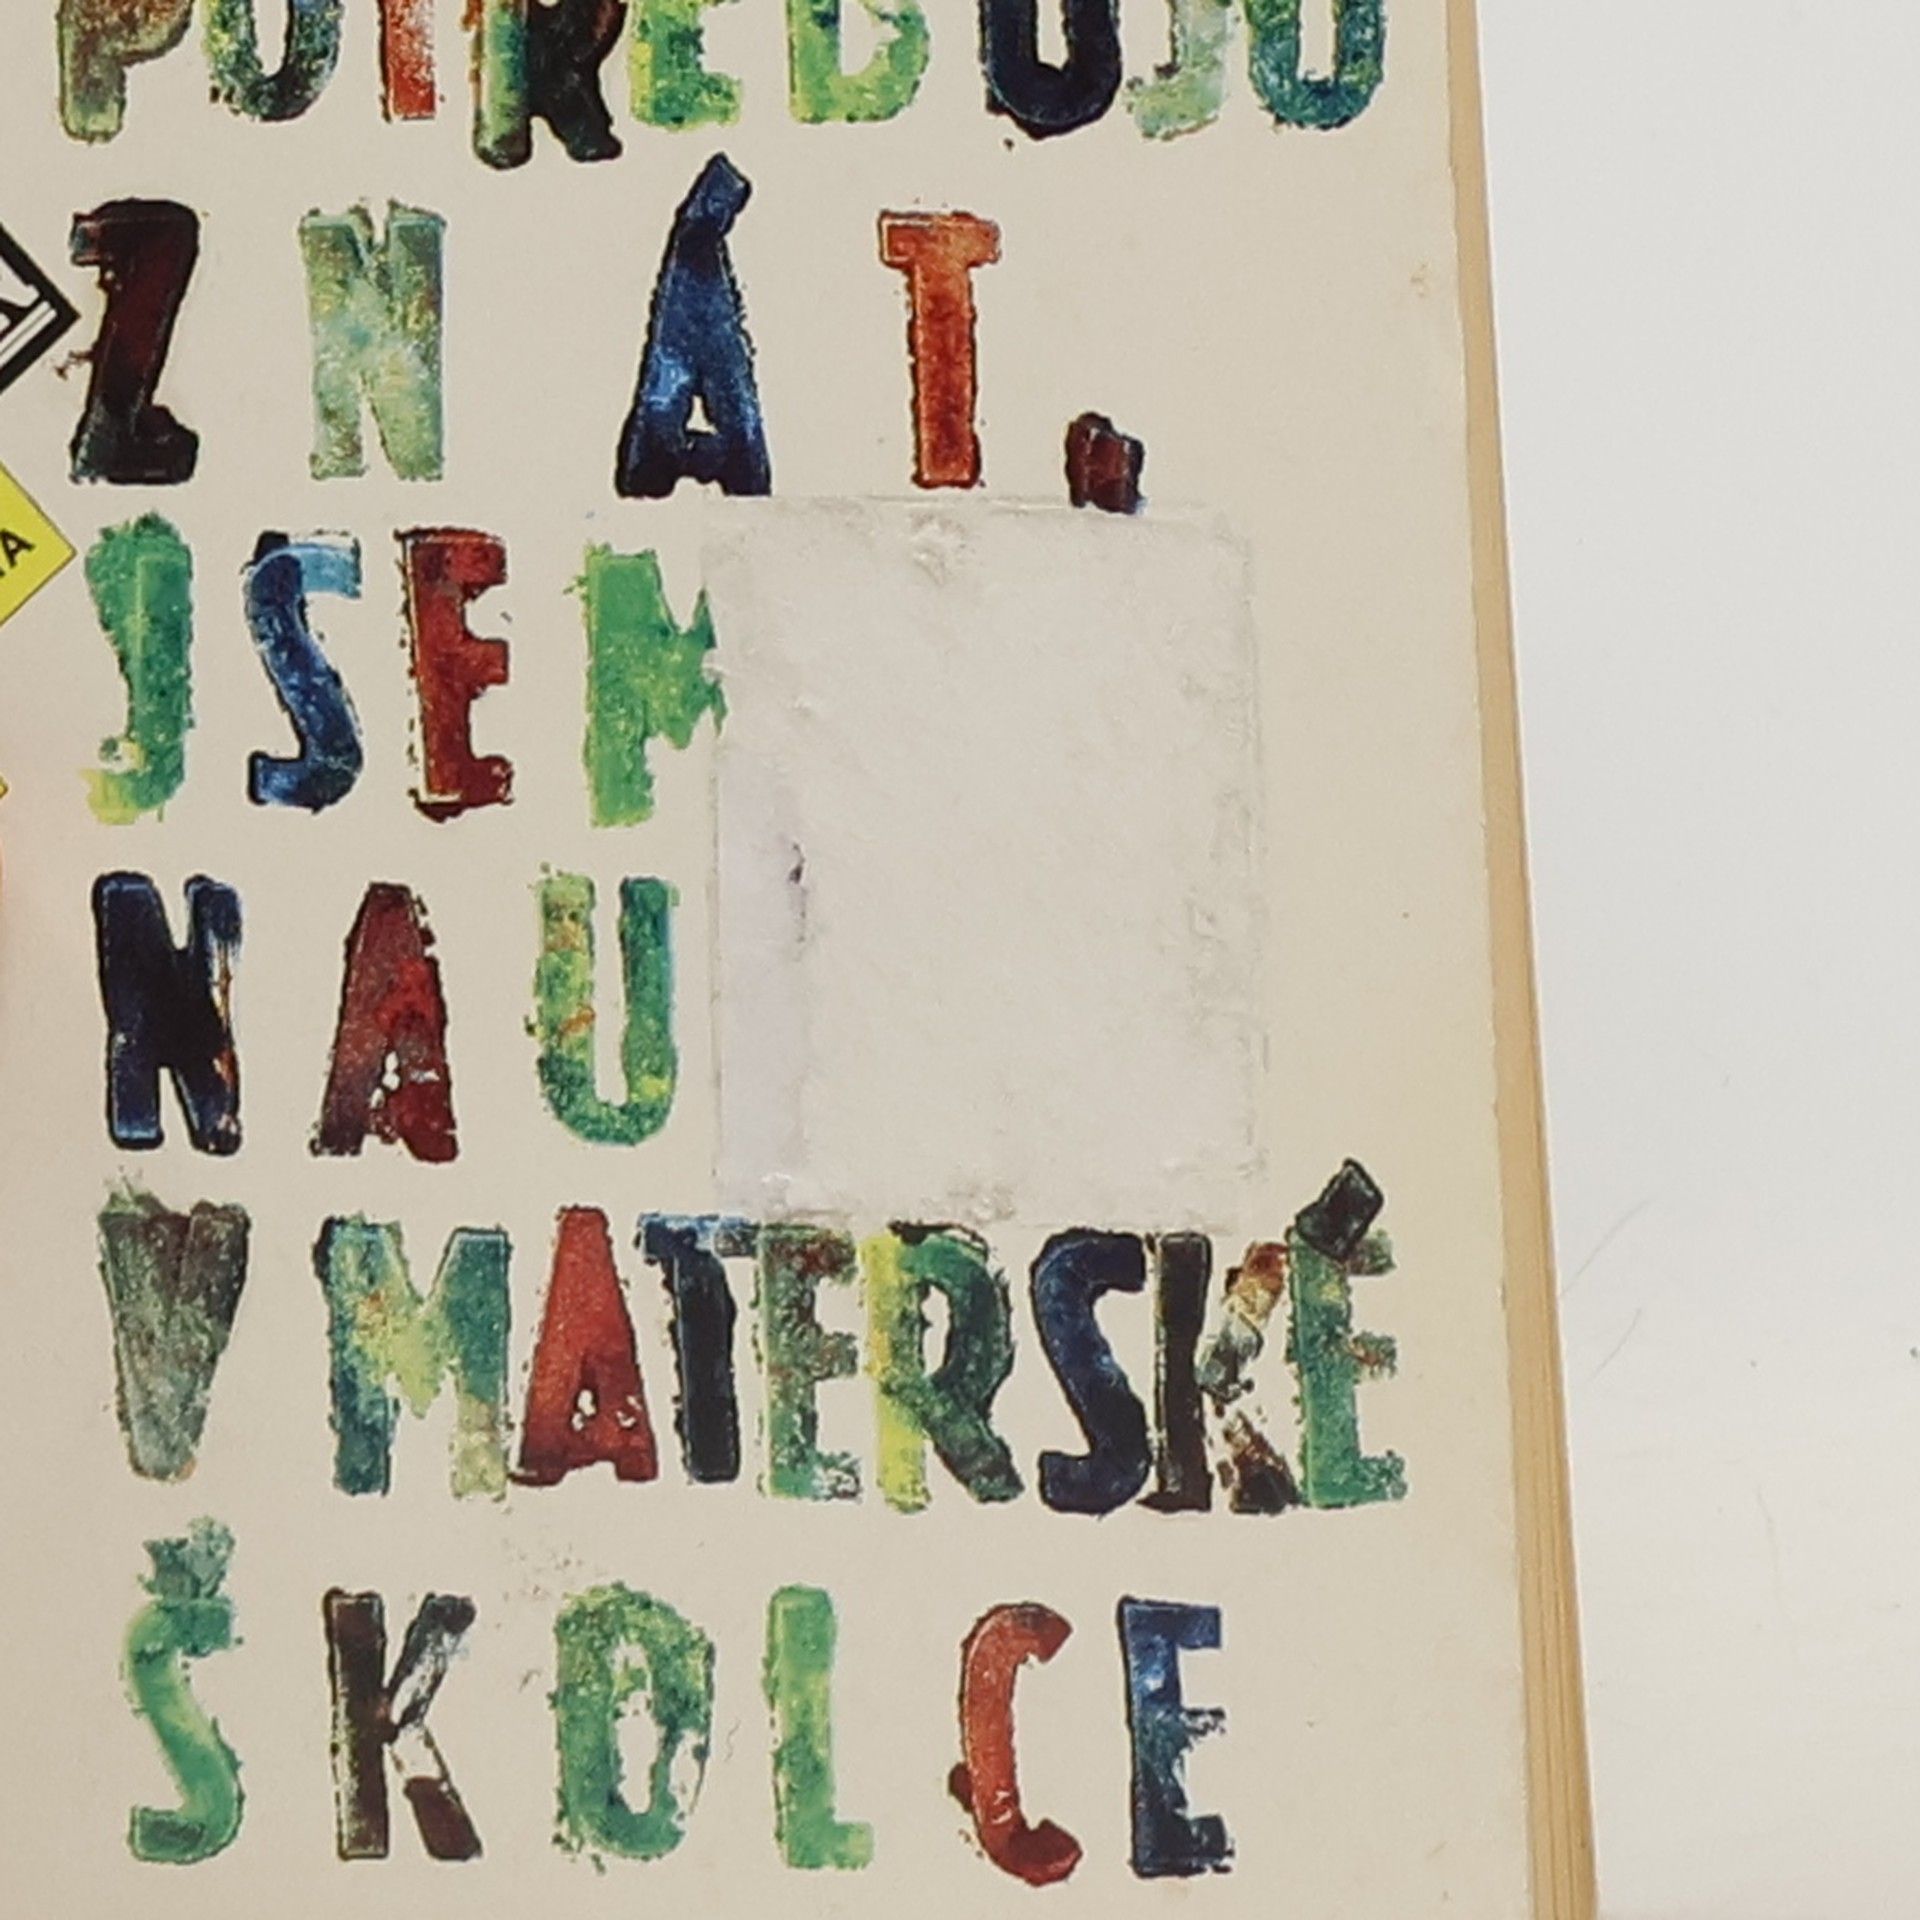 POTŘEBUJU
ZNÁT,
JSEM
NAU
V MATEŘSKÉ
ŠKOLCE